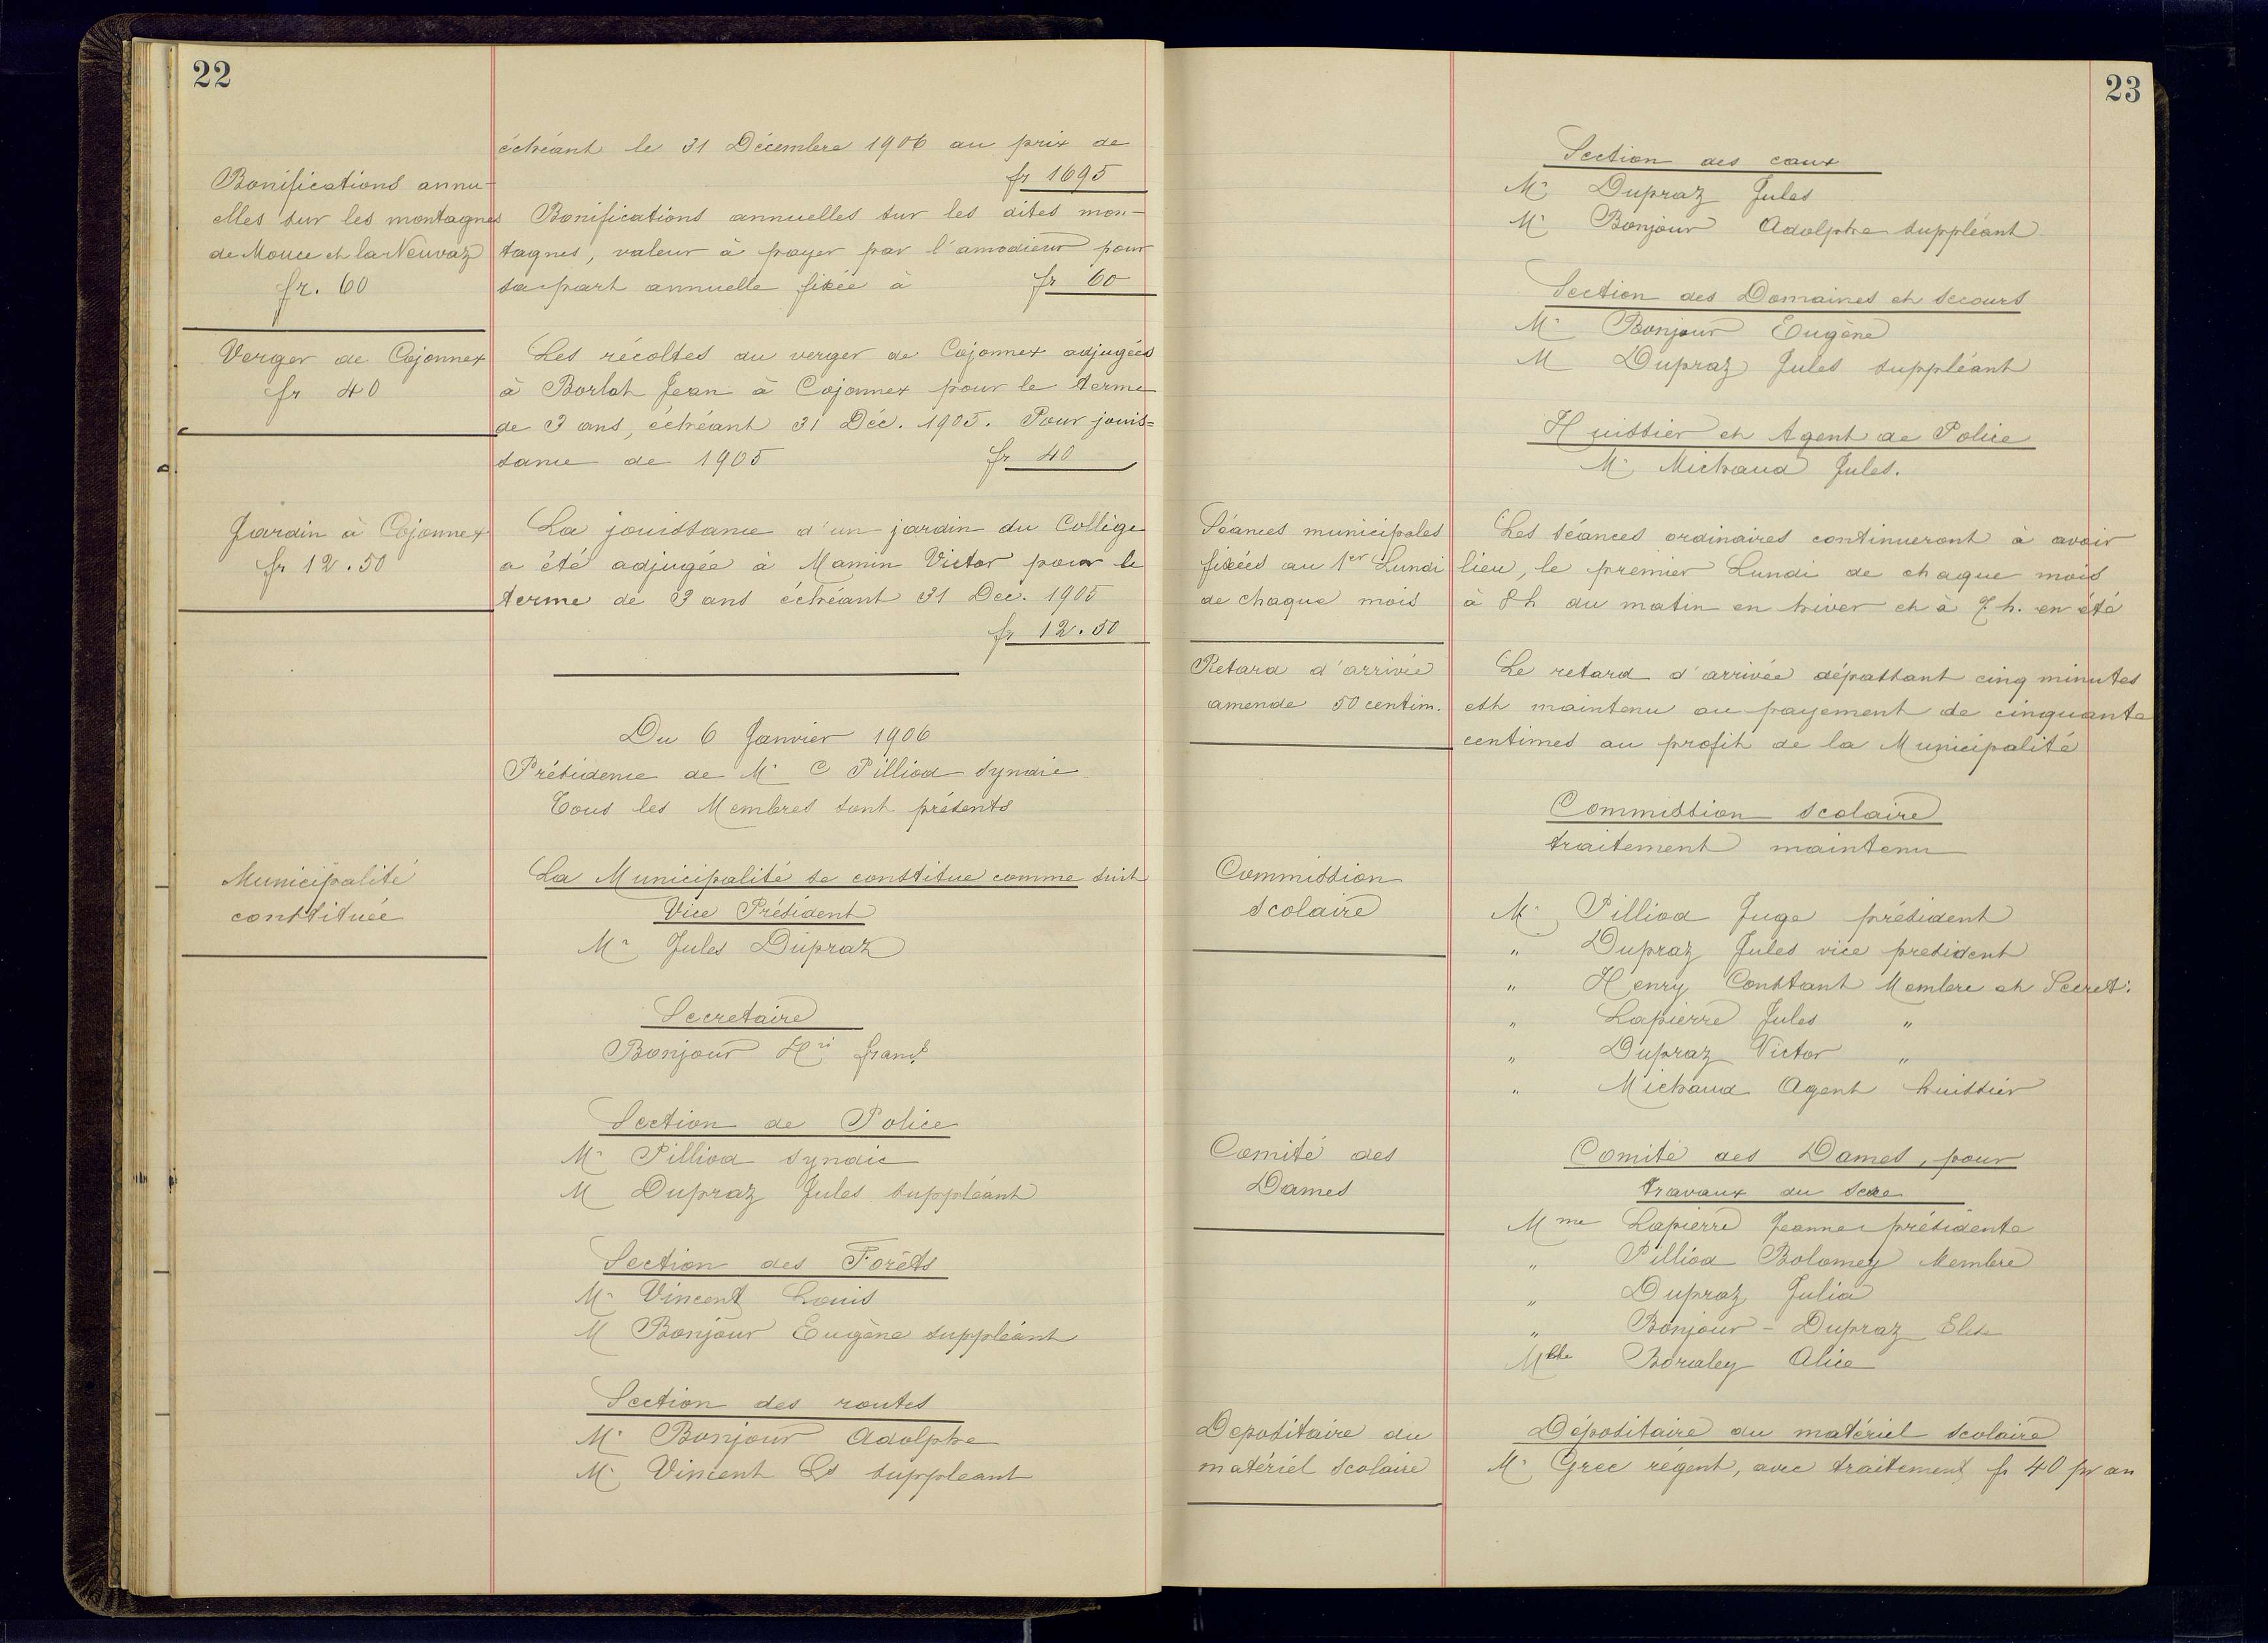 22
échéant le 31 Décembre 1906 au prix de
fr 1695
Bonifications annu-
elles sur les montagnes
de Mouce et la Neuvaz
fr. 60
Bonifications annuelles sur les dites mon-
tagnes, valeur à payer par l'amodieur pour
sa part annuelle fixée à fr 60
Verger de Cojonnex
fr 40
Les récoltes du verger de Cojonnex adjugées
à Borlat Jean à Cojonnex pour le terme
de 3 ans, échéant 31 Déc. 1905. Pour jouis=
sance de 1905 fr 40
Jardin à Cojonnex
fr 12.50
La jouissance d'un jardin du Collège
a été adjugée à Mamin Victor pour le
terme de 3 ans échéant 31 Dec. 1905
fr 12.50
Du 6 Janvier 1906
Présidence de Mr C Pilliod Syndic
Tous les Membres sont présents
Municipalité
constituée
La Municipalité se constitue comme suit
Vice Président
Mr Jules Dupraz
Secretaire
Bonjour Hri franç.s
Section de Police
Mr Pilliod Syndic
M Dupraz Jules suppléant
Section des Forêts
Mr Vincent Louis
M Bonjour Eugène suppléant
Section des routes
Mr Bonjour Adolphe
Mr Vincent Ls suppleant
23
Section des eaux
Mr Dupraz Jules
Mr Bonjour Adolphe suppléant
Section des Domaines et secours
Mr Bonjour Eugène
M Dupraz Jules suppléant
Huissier et Agent de Police
Mr Michaud Jules.
Séances municipales
fixées au 1er Lundi
de chaque mois
Les séances ordinaires continueront à avoir
lieu, le premier Lundi de chaque mois
à 8 h du matin en hiver et à 7 h. en été
Retard d'arrivée
amende 50 centim.
Le retard d'arrivée dépassant cinq minutes
est maintenu au payement de cinquante
centimes au profit de la Municipalité
Commission scolaire
traitement maintenu
Commission
scolaire
Mr Pilliod Juge président
" Dupraz Jules vice president
" Henry Constant Membre et Secret.
" Lapierre Jules "
" Dupraz Victor "
" Michaud Agent huissier
Comité des
Dames
Comité des Dames, pour
travaux du sexe
Mme Lapierre Jeanne présidente
" Pilliod Bolomey Membre
" Dupraz Julia
" Bonjour - Dupraz Elise
Mlle Alice
Depositaire du
matériel scolaire
Dépositaire du matériel scolaire
Mr Grec régent, avec traitement fr 40 pr an